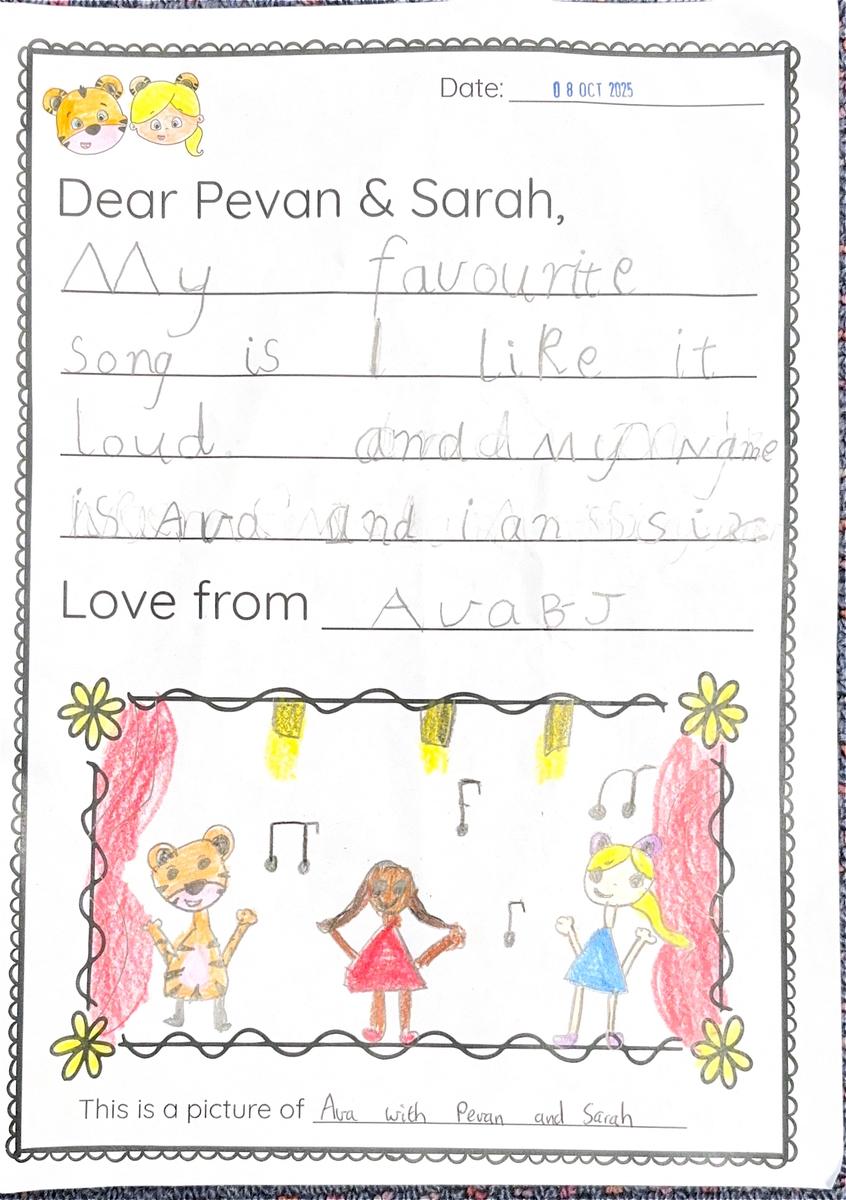 Date: 08 OCT 2025
Dear Pevan & Sarah,
My favourite
song is I like it
loud. and my Name
is Ava and i an six
Love from Ava B-J
This is a picture of Ava with Pevan and Sarah